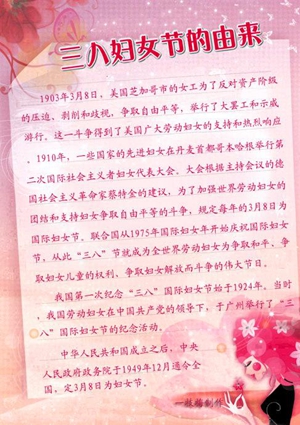 三八妇女节的由来
1903年3月8日，美国芝加哥市的女工为了反对资产阶级
的压迫、剥削和歧视，争取自由平等，举行了大罢工和示威
游行。这一斗争得到了美国广大劳动妇女的支持和热烈响应
。1910年，一些国家的先进妇女在丹麦首都哥本哈根举行第
二次国际社会主义者妇女代表大会。大会根据主持会议的德
国社会主义革命家蔡特金的建议，为了加强世界劳动妇女的
团结和支持妇女争取自由平等的斗争，规定每年的3月8日为
国际妇女节。联合国从1975年国际妇女年开始庆祝国际妇女
节。从此“三八”节就成为全世界劳动妇女为争取和平、争
取妇女儿童的权利、争取妇女解放而斗争的伟大节日。
我国第一次纪念“三八”国际妇女节始于1924年。当时
，我国劳动妇女在中国共产党的领导下，于广州举行了“三
八”国际妇女节的纪念活动。
中华人民共和国成立之后，中央
人民政府政务院于1949年12月通令全
国，定3月8日为妇女节。